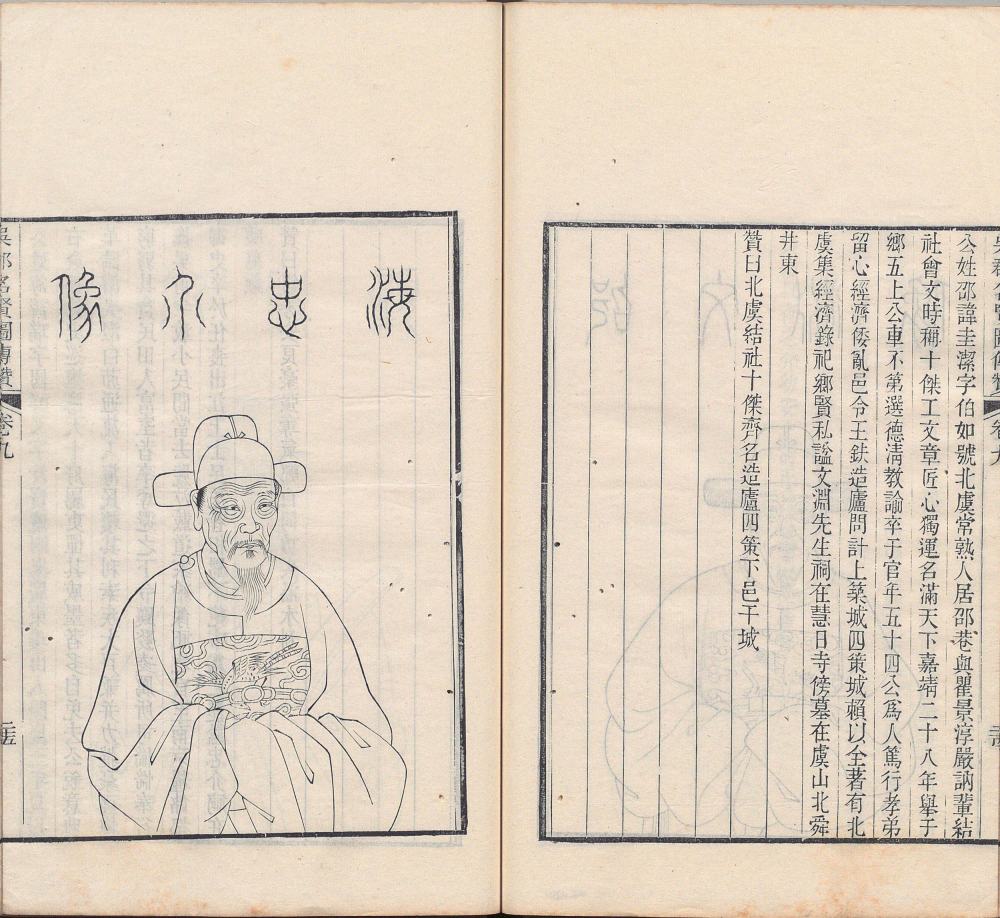 公姓邵諱圭潔字伯如號北虞常熟人居邵巷與瞿景淳嚴訥輩結
社會文時稱十傑工文章匠心獨運名滿天下嘉靖二十八年舉于
鄉五上公車不第選德清教諭卒于官年五十四公爲人篤行孝弟
留心經濟倭亂邑令王鈇造廬問計上築城四策城賴以全著有北
虞集經濟錄祀鄉賢私諡文淵先生祠在慧日寺傍墓在虞山北舜
井東
贊曰北虞結社十傑齊名造廬四策下邑干城
海忠介像
吳郡名賢圖傳贊 卷九 二五